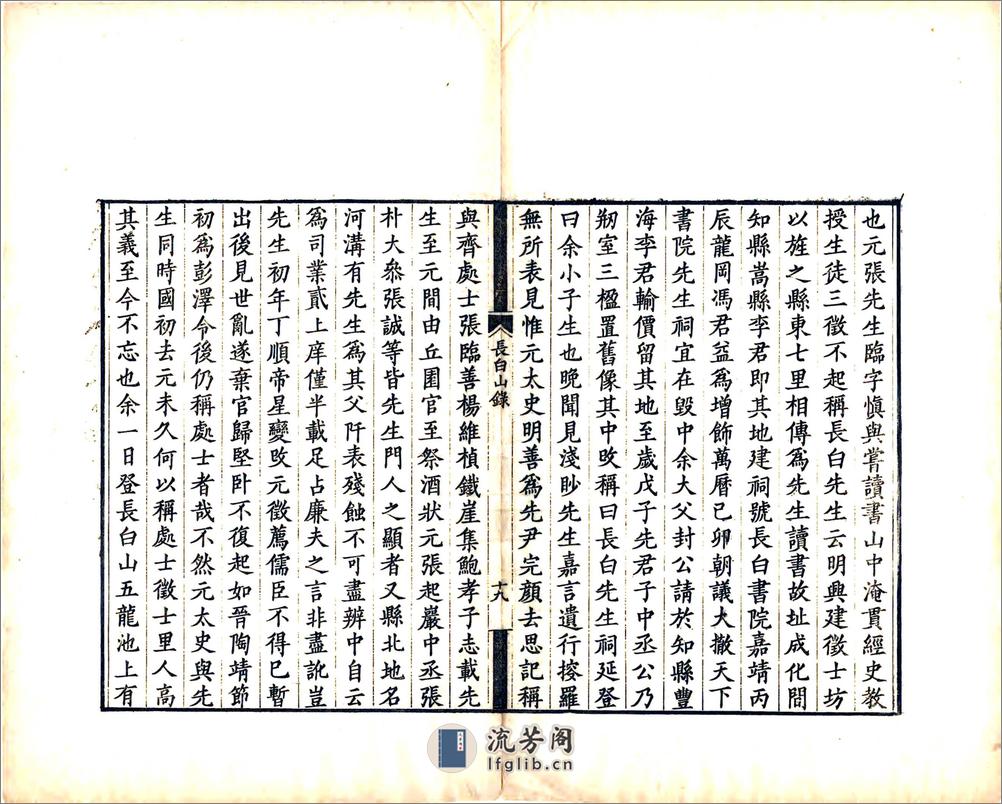 也元張先生臨字愼與嘗讀書山中淹貫經史教
授生徒三徵不起稱長白先生云明興建徵士坊
以旌之縣東七里相傳爲先生讀書故址成化間
知縣嵩縣李君即其地建祠號長白書院嘉靖丙
辰龍岡馮君益爲增飾萬曆己卯朝議大撤天下
書院先生祠宜在毀中余大父封公請於知縣豐
海李君輸價留其地至歲戊子先君子中丞公乃
剏室三楹置舊像其中攺稱曰長白先生祠延登
曰余小子生也晚聞見淺眇先生嘉言遺行搜羅
無所表見惟元太史明善爲先尹完顏去思記稱
長白山錄
十九
與齊處士張臨善楊維楨鐵崖集鮑孝子志載先
生至元間由丘園官至祭酒狀元張起巖中丞張
朴大叅張誠等皆先生門人之顯者又縣北地名
河溝有先生爲其父阡表殘蝕不可盡辨中自云
爲司業貳上庠僅半載足占廉夫之言非盡訛豈
先生初年丁順帝星變攺元徵薦儒臣不得已暫
出後見世亂遂棄官歸堅卧不復起如晉陶靖節
初爲彭澤令後仍稱處士者哉不然元太史與先
生同時國初去元未久何以稱處士徵士里人高
其義至今不忘也余一日登長白山五龍池上有
流芳阁
lfglib.cn